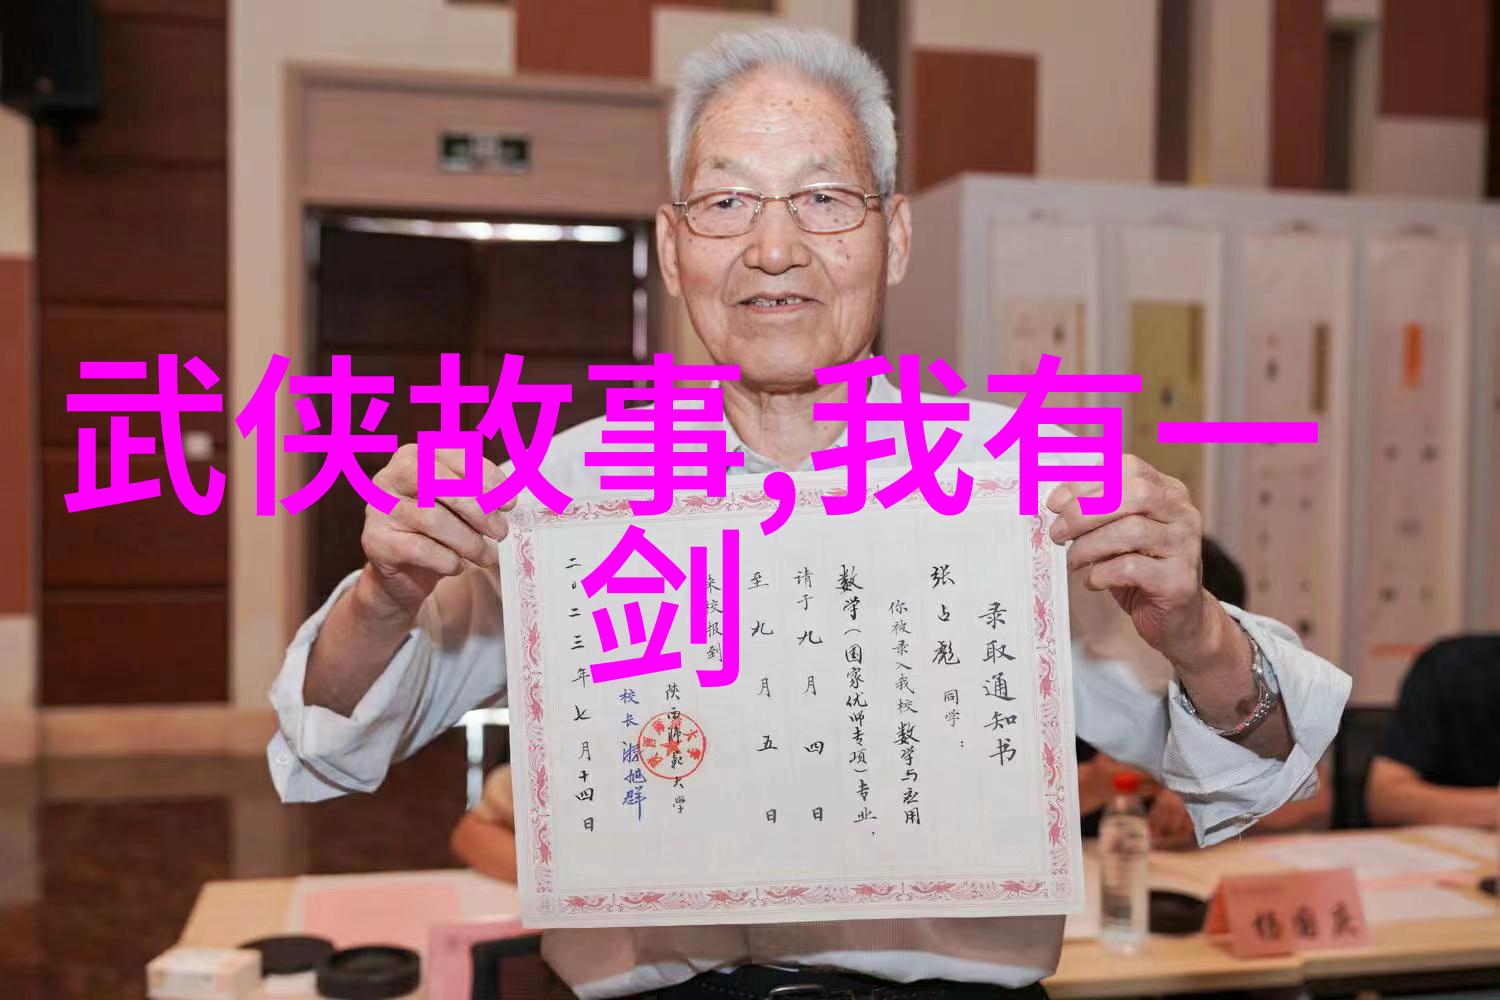 武侠故事,我有一
剑
录取通知书
张占彪 同学：
你被录入我校 数学与应用
数学（国家优师专项）专业，
请于九月四日
至九月五日
来校报到
陕西师范大学
校长 游旭群
二〇二三年七月十四日
杨国庆